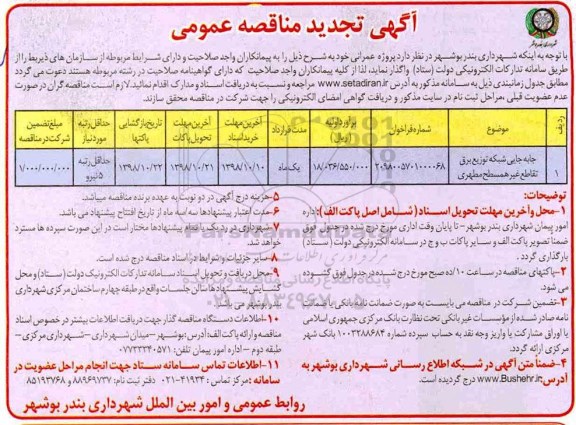 آگهی تجدید مناقصه عمومی
با توجه به اینکه شهرداری بندر بوشهر در نظر دارد پروژه عمرانی خود به شرح ذیل را به پیمانکاران واجد صلاحیت و دارای شرایط مربوطه از سازمان های ذیربط را از
طریق سامانه تدارکات الکترونیکی دولت (ستاد) واگذار نماید، لذا از کلیه پیمانکاران واجد صلاحیت که دارای گواهینامه صلاحیت در رشته مربوطه هستند دعوت می گردد
مطابق جدول زمانبندی ذیل به سامانه مذکور به آدرس www.setadiran.ir مراجعه و نسبت به دریافت اسناد و مدارک اقدام نمائید. لازم است مناقصه گران در صورت
عدم عضویت قبلی ،مراحل ثبت نام در سایت مذکور و دریافت گواهی امضای الکترونیکی را جهت شرکت در مناقصه محقق سازند.
ردیف موضوع شماره فراخوان برآورد اولیه (ریال) مدت قرارداد آخرین مهلت خرید اسناد آخرین مهلت تحویل پاکات تاریخ بازگشایی پاکتها حداقل رتبه مورد نیاز مبلغ تضمین شرکت در مناقصه
۱ جابه جایی شبکه توزیع برق تقاطع غیر همسطح مطهری ۲۰۹۸۰۰۵۷۰۱۰۰۰۰۶۸ ۱۸/۰۳۶/۵۵۰/۰۰۰ یک ماه ۱۳۹۸/۱۰/۱۰ ۱۳۹۸/۱۰/۲۱ ۱۳۹۸/۱۰/۲۲ حداقل رتبه ۵ نیرو ۱/۰۰۰/۰۰۰/۰۰۰
توضیحات:
۱-محل و آخرین مهلت تحویل اسناد (شامل اصل پاکت الف): اداره
امور پیمان شهرداری بندر بوشهر – تا پایان وقت اداری مورخ درج شده در جدول فوق
ضمنا تصویر پاکت الف و سایر پاکات ب و ج در سامانه الکترونیکی دولت (ستاد)
بارگذاری گردد.
۲-پاکتهای مناقصه در ساعت ۱۰/۰۰ صبح مورخ درج شده در جدول فوق گشوده
می شود.
۳-تضمین شرکت در مناقصه می بایست به صورت ضمانت نامه بانکی یا ضمانت
نامه صادر شده از مؤسسات غیر بانکی تحت نظارت بانک مرکزی جمهوری اسلامی
یا اوراق مشارکت یا واریز وجه نقد به حساب سپرده شماره ۱۰۰۳۲۸۸۶۸۴ بانک شهر
مرکزی ارائه گردد.
۴-ضمناً متن آگهی در شبکه اطلاع رسانی شهرداری بوشهر به
آدرس:www.Bushehr.ir درج گردیده است.
۵-هزینه درج آگهی در دو نوبت به عهده برنده مناقصه میباشد.
۶-مدت اعتبار پیشنهادها سه ماه از تاریخ افتتاح پیشنهاد می باشد.
۷-شهرداری در رد یک یا تمام پیشنهادها مختار است در این صورت سپرده ها مسترد
خواهد شد.
۸-سایر جزئیات و شرایط در اسناد مناقصه درج شده است.
۹-محل دریافت و تحویل اسناد سامانه تدارکات الکترونیک دولت (ستاد) و محل
گشایش پیشنهادها سالن جلسات واقع در طبقه چهارم ساختمان مرکزی شهرداری
بندر بوشهر می باشد.
۱۰-اطلاعات دستگاه مناقصه گذار جهت دریافت اطلاعات بیشتر در خصوص اسناد
مناقصه و ارائه پاکت الف: آدرس: بوشهر –میدان شهرداری –شهرداری مرکزی –
طبقه دوم – اداره امور پیمان تلفن: ۰۷۷۳۳۳۴۰۵۷۱
۱۱-اطلاعات تماس سامانه ستاد جهت انجام مراحل عضویت در
سامانه :مرکز تماس : ۴۱۹۳۴-۰۲۱ دفتر ثبت نام: ۸۸۹۶۹۷۳۷ و ۸۵۱۹۳۷۶۸
روابط عمومی و امور بین الملل شهرداری بندر بوشهر